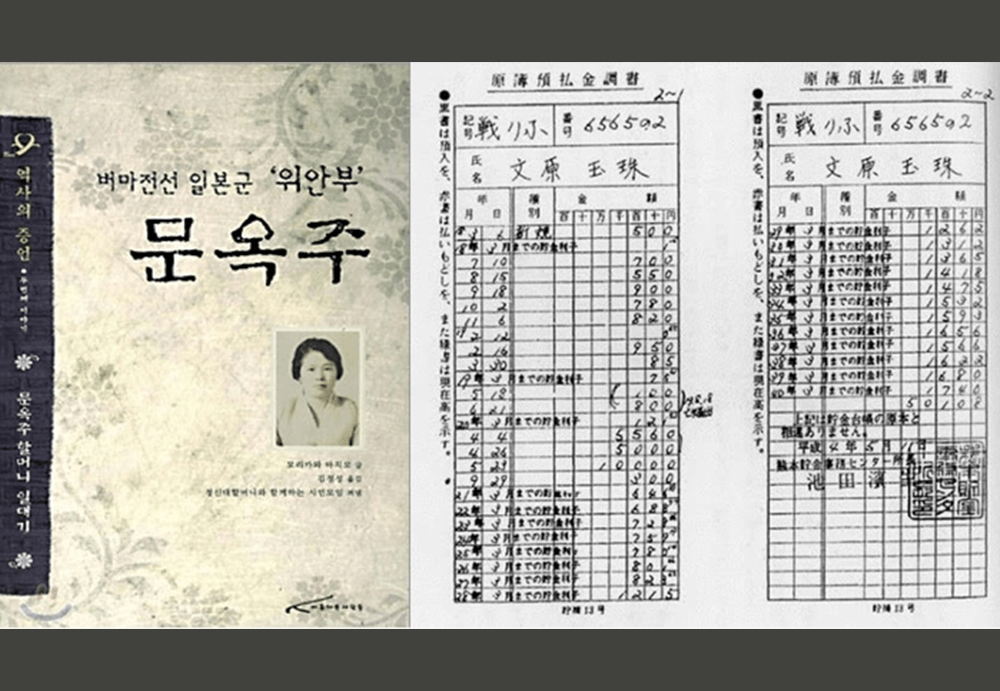 역사의 증언
문옥주 할머니 일대기
버마전선 일본군 '위안부'
문옥주
모리카와 마치코 글
김정성 옮김
정신대할머니와 함께하는 시민모임 펴냄
原簿預払金調書
2~1
●黒書は預入を、赤書は払いもどしを、また緑書は現在高を示す。
記号 戦りふ 番号 656592
氏名 文原玉珠
年 月日 種別 金額
百 十 万 千 百 十 円
18 3 6 新規 500
18年 3月までの貯金利子
7 10 700
8 15 550
9 18 900
10 2 780
11 6 820
2 16 950
3 30 85
19年 3月までの貯金利子
5 18 100
6 21 800
20年 3月までの貯金利子
4 4 5560
4 26 5000
5 23 10000
9 29 300
21年 3月までの貯金利子
22年 3月までの貯金利子
23年 3月までの貯金利子
24年 3月までの貯金利子
25年 3月までの貯金利子
26年 3月までの貯金利子
27年 3月までの貯金利子
28年 3月までの貯金利子 1215
貯補13号
原簿預払金調書
2~2
●黒書は預入を、赤書は払いもどしを、また緑書は現在高を示す。
記号 戦りふ 番号 656592
氏名 文原玉珠
年 月日 種別 金額
百 十 万 千 百 十 円
29年 3月までの貯金利子 1262
30年 3月までの貯金利子
31年 3月までの貯金利子 1365
32年 3月までの貯金利子 1418
33年 3月までの貯金利子 1475
34年 3月までの貯金利子 1532
35年 3月までの貯金利子 1593
36年 3月までの貯金利子 1656
37年 3月までの貯金利子 1566
38年 3月までの貯金利子 1622
39年 3月までの貯金利子 1680
40年 3月までの貯金利子 1740
50108
上記は貯金台帳の原本と
相違ありません。
平成4年5月11日
熊本貯金事務センター所長
貯補13号